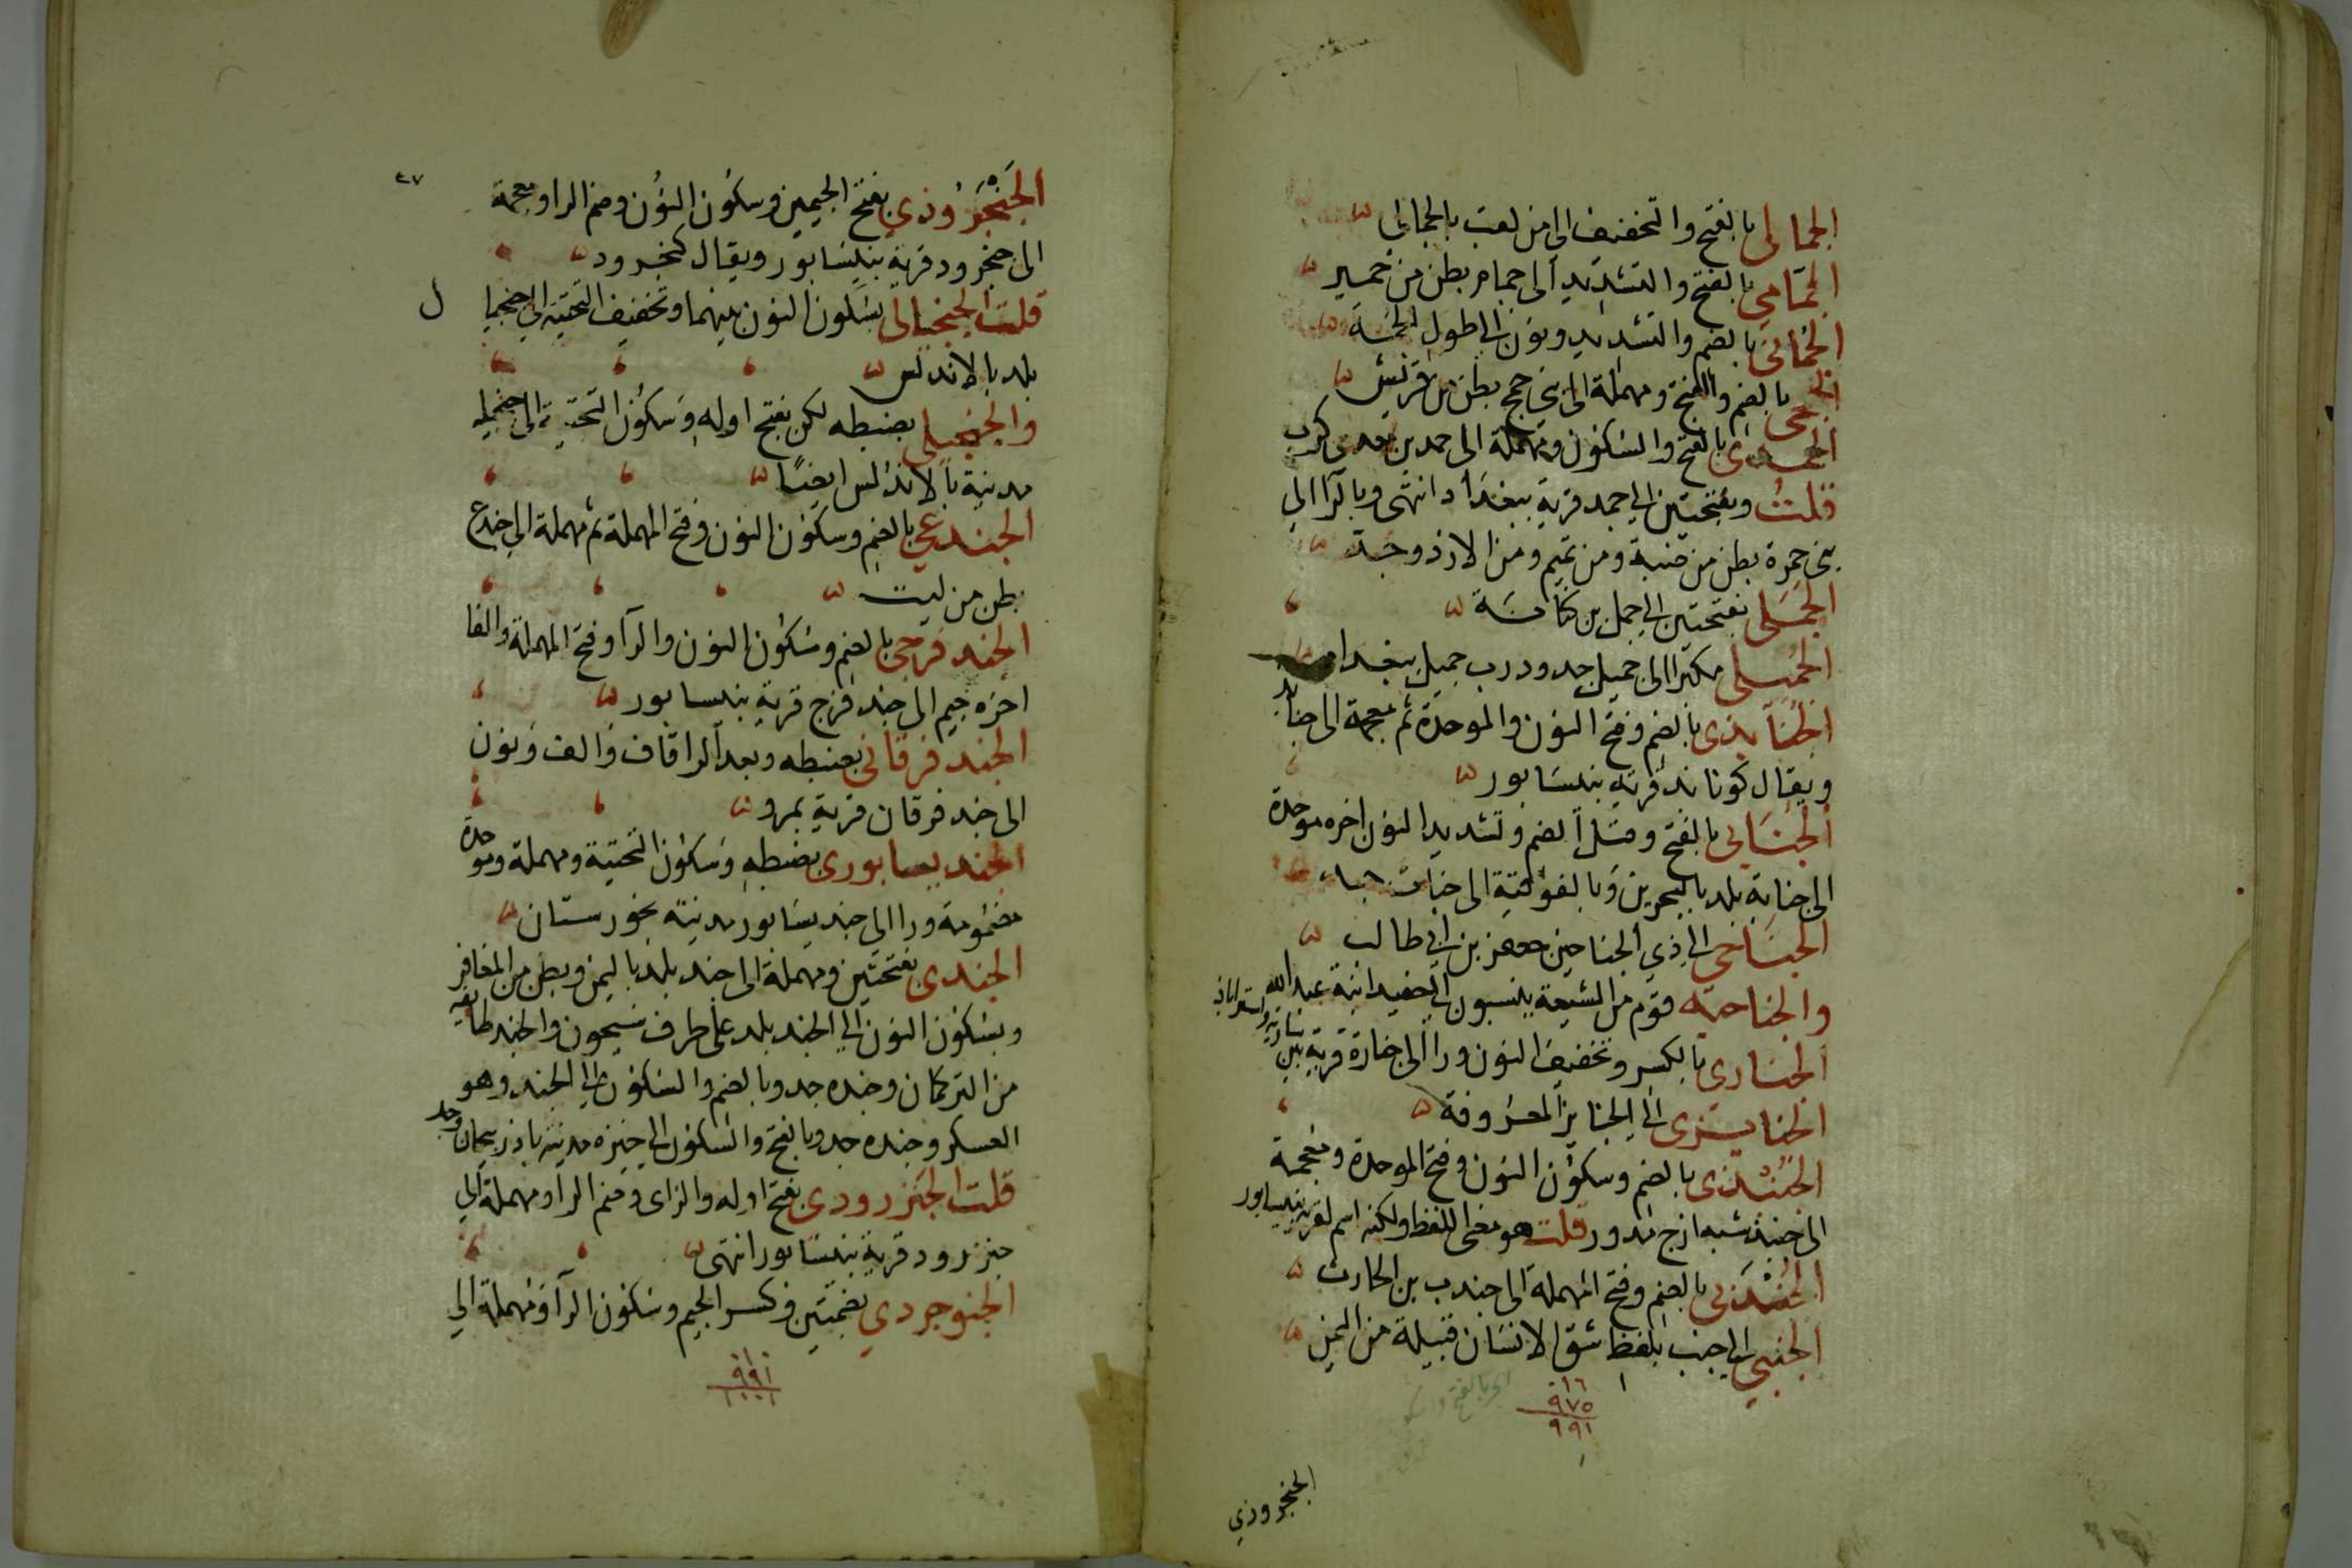 الجمالى بالفتح والتخفيف الى من لعب بالجمال
الجمامى بالفتح والتشديد الى جمام بطن من حمير
الجمانى بالضم والتشديد ونون الى طول الجمة
الجمحى بالضم والفتح ومهملة الى بنى جمح بطن من قريش
الجمدى بالفتح والسكون ومهملة الى جمد بن معدى كرب
قلت وبفتحتين الى جمد قرية ببغداد انتهى وبالرا الى
بنى جمرة بطن من ضبة ومن تميم ومن الازد وجد
الجملى بفتحتين الى جمل بن كنانة
الجميلى مكبرا الى جميل جد ودرب جميل ببغداد
الجنابذى بالضم وفتح النون والموحدة ثم معجمة الى جنابذ
ويقال كونابذ قرية بنيسابور
الجنابى بالفتح وقيل الضم وتشديد النون اخره موحدة
الى جنابة بلد بالبحرين وبالفوقية الى جنات
الجناحى الى ذي الجناحين جعفر بن ابي طالب
والجناحية قوم من الشيعة ينسبون الى حفيد ابنه عبد الله
الجنارى بالكسر وتخفيف النون ورا الى جنارة قرية بين سارية واستراباذ
الجنايزى الى الجنايز المعروفة
الجنبذى بالضم وسكون النون وفتح الموحدة ومعجمة
الى جنبذ شبه ازج مدور قلت هو معنى اللفظ ولكنه اسم لقرية بنيسابور
الجندبى بالضم وفتح المهملة الى جندب بن الحارث
الجنبي الى جنب بلفظ شق الانسان قبيلة من اليمن
١٦
٩٧٥
٩٩١
الجنجروذي
٤٧
الجنجروذي بفتح الجيمين وسكون النون وضم الرا ومعجمة
الى جنجرود قرية بنيسابور ويقال كنجرود
قلت الجنجيالى بسكون النون بينهما وتخفيف التحتية الى جنجيال
بلد بالاندلس
والجنجيلى بضبطه لكن بفتح اوله وسكون التحتية الى جنجيله
مدينة بالاندلس ايضا
الجندعي بالضم وسكون النون وفتح المهملة ثم مهملة الى جندع
بطن من ليث
الجندفرجى بالضم وسكون النون والرا وفتح المهملة والفا
اخره جيم الى جندفرج قرية بنيسابور
الجندفرقانى بضبطه وبعد الرا قاف والف ونون
الى جندفرقان قرية بمرو
الجنديسابورى بضبطه وسكون التحتية ومهملة وموحدة
مضمومة ورا الى جنديسابور مدينة بخورستان
الجندى بفتحتين ومهملة الى جند بلد باليمن وبطن من المعافر
وبسكون النون الى الجند بلد على طرف سيحون والجند طايفة
من التركمان وجنده جد وبالضم والسكون الى الجند وهو
العسكر وجنده جد وبالفتح والسكون الى جنزه مدينة باذربيجان وجد
قلت الجنزرودى بفتح اوله والزاى وضم الرا ومهملة الى
جنزرود قرية بنيسابور انتهى
الجنوجردي بضمتين وكسر الجيم وسكون الرا ومهملة الى
١٠
٩٩١
١٠٠١